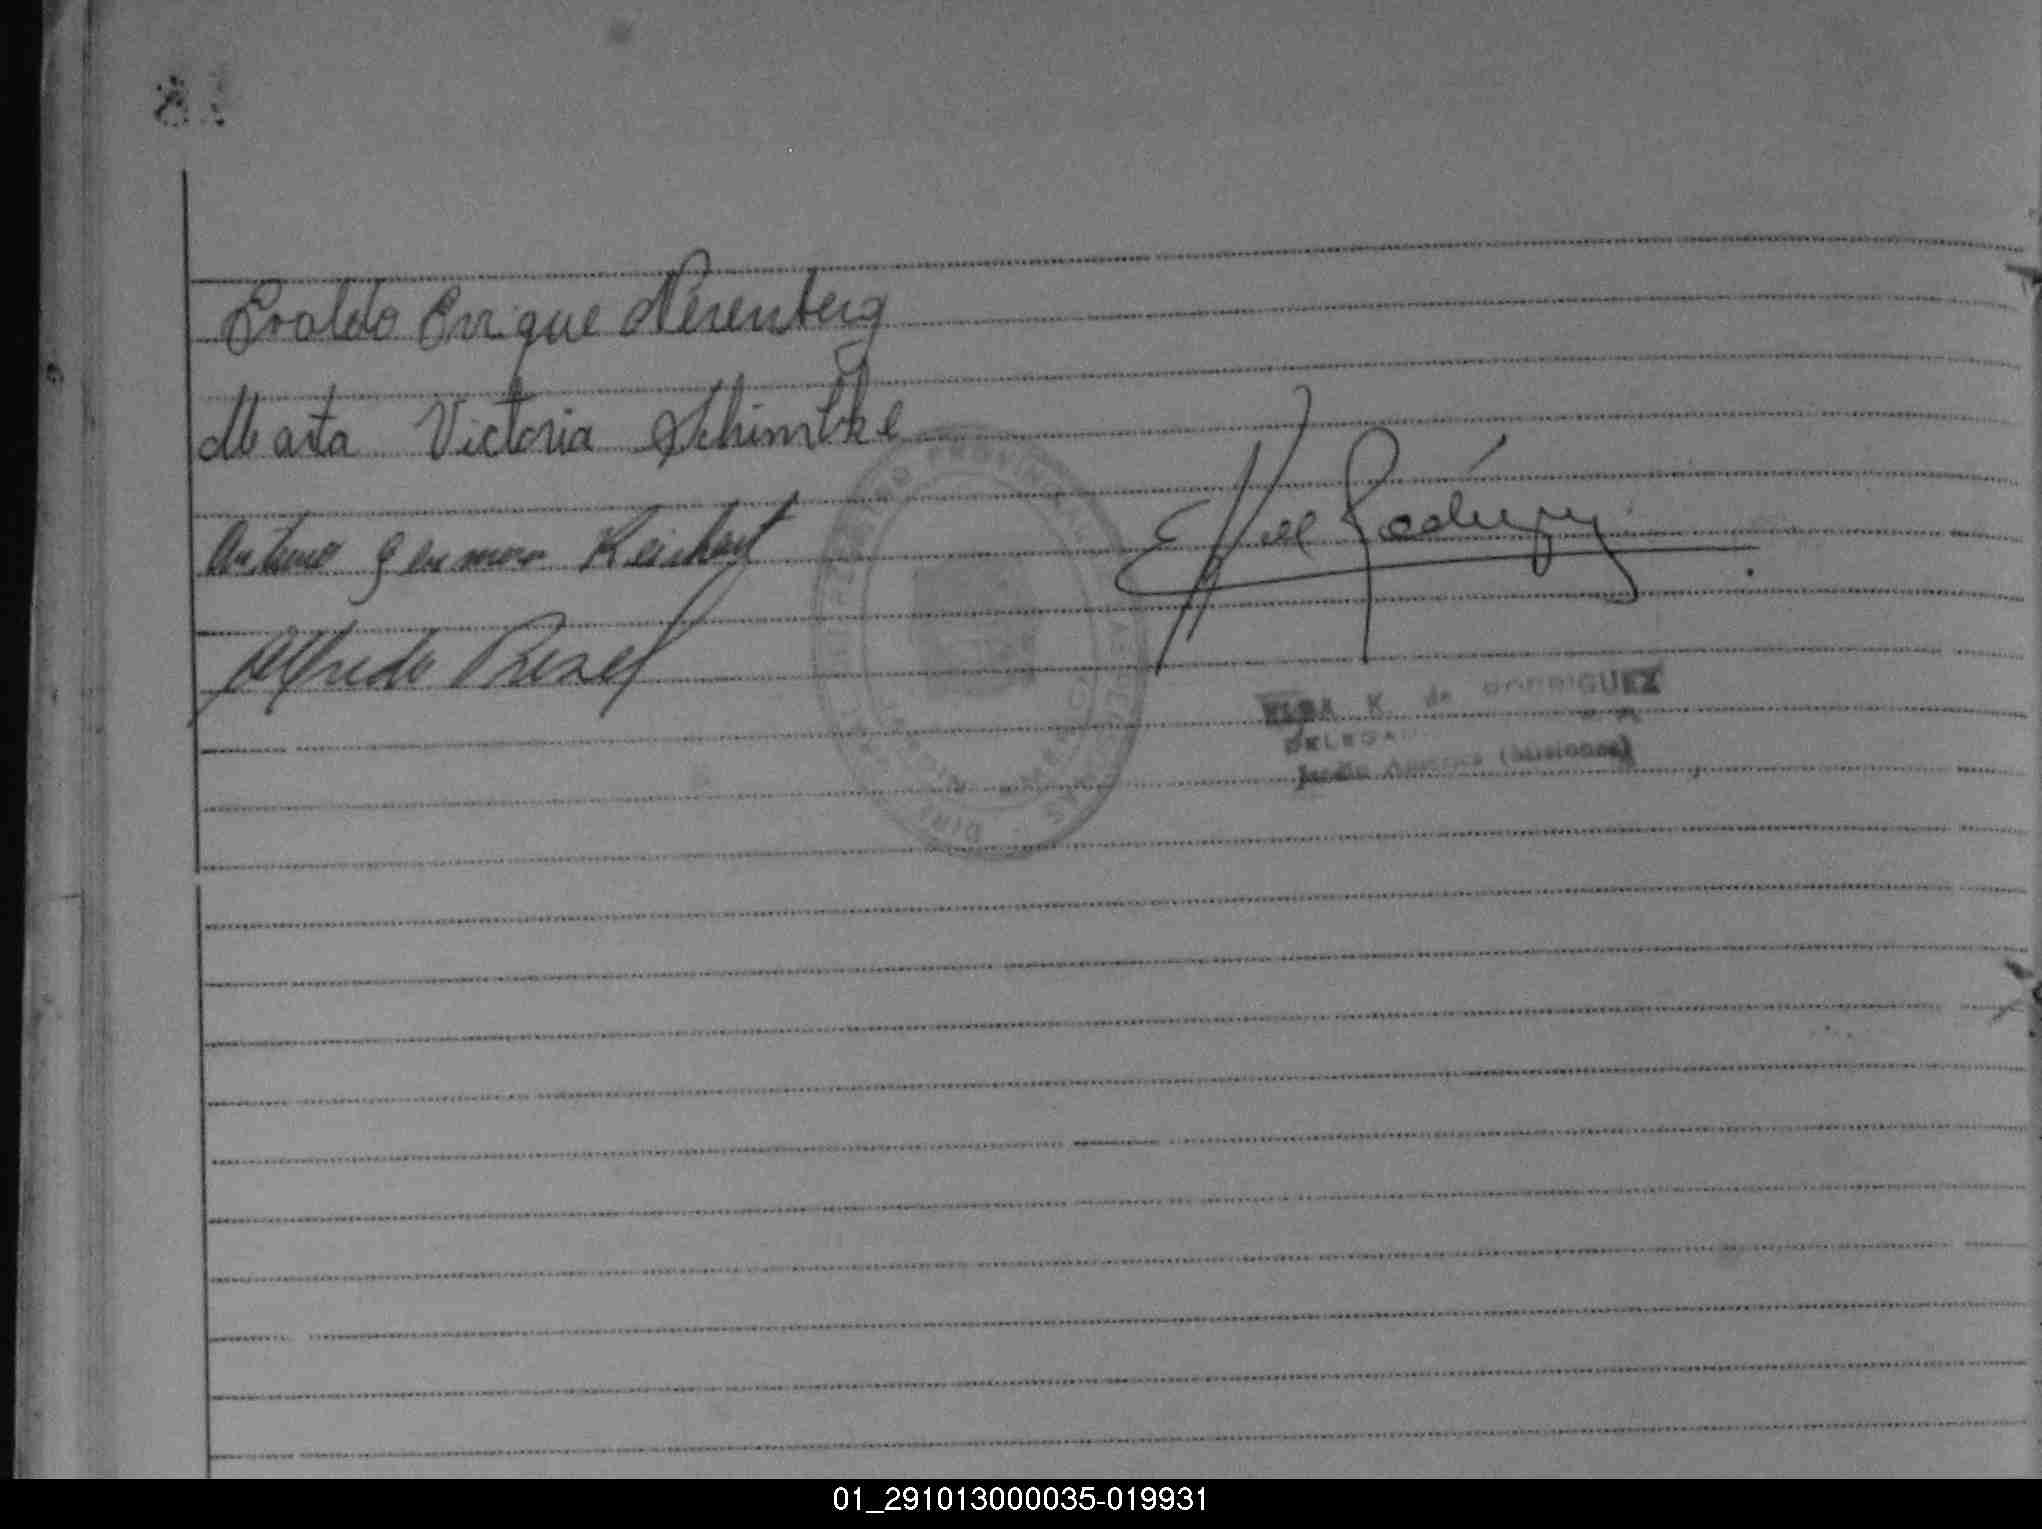 Evaldo Enrique Nerenberg
Marta Victoria Schimtke
Arturo German Reichert
Alfredo
E K de Rodriguez
ELBA K. de RODRIGUEZ
DELEGADA
Jardín América (Misiones)
01_291013000035-019931